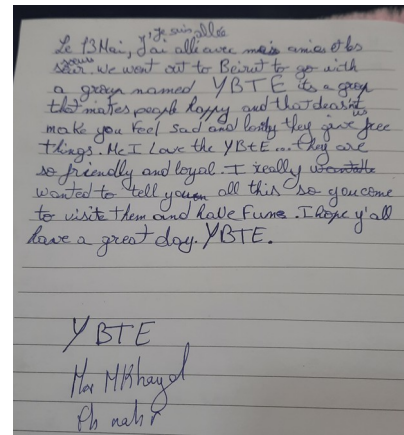 j'y suis allée
Le 13 Mai, j'ai alli avec mais amies et les
sœur. we went out to Beirut to go with
a group named YBTE its a group
that makes people happy and that deasn't
make you feel sad and lonly they give us free
things. Me I Love the YBTE... they are
so friendly and loyal. I really
wanted to tell you all this so you come
to visit them and have Fun. I hope y'all
have a great day. YBTE.
YBTE